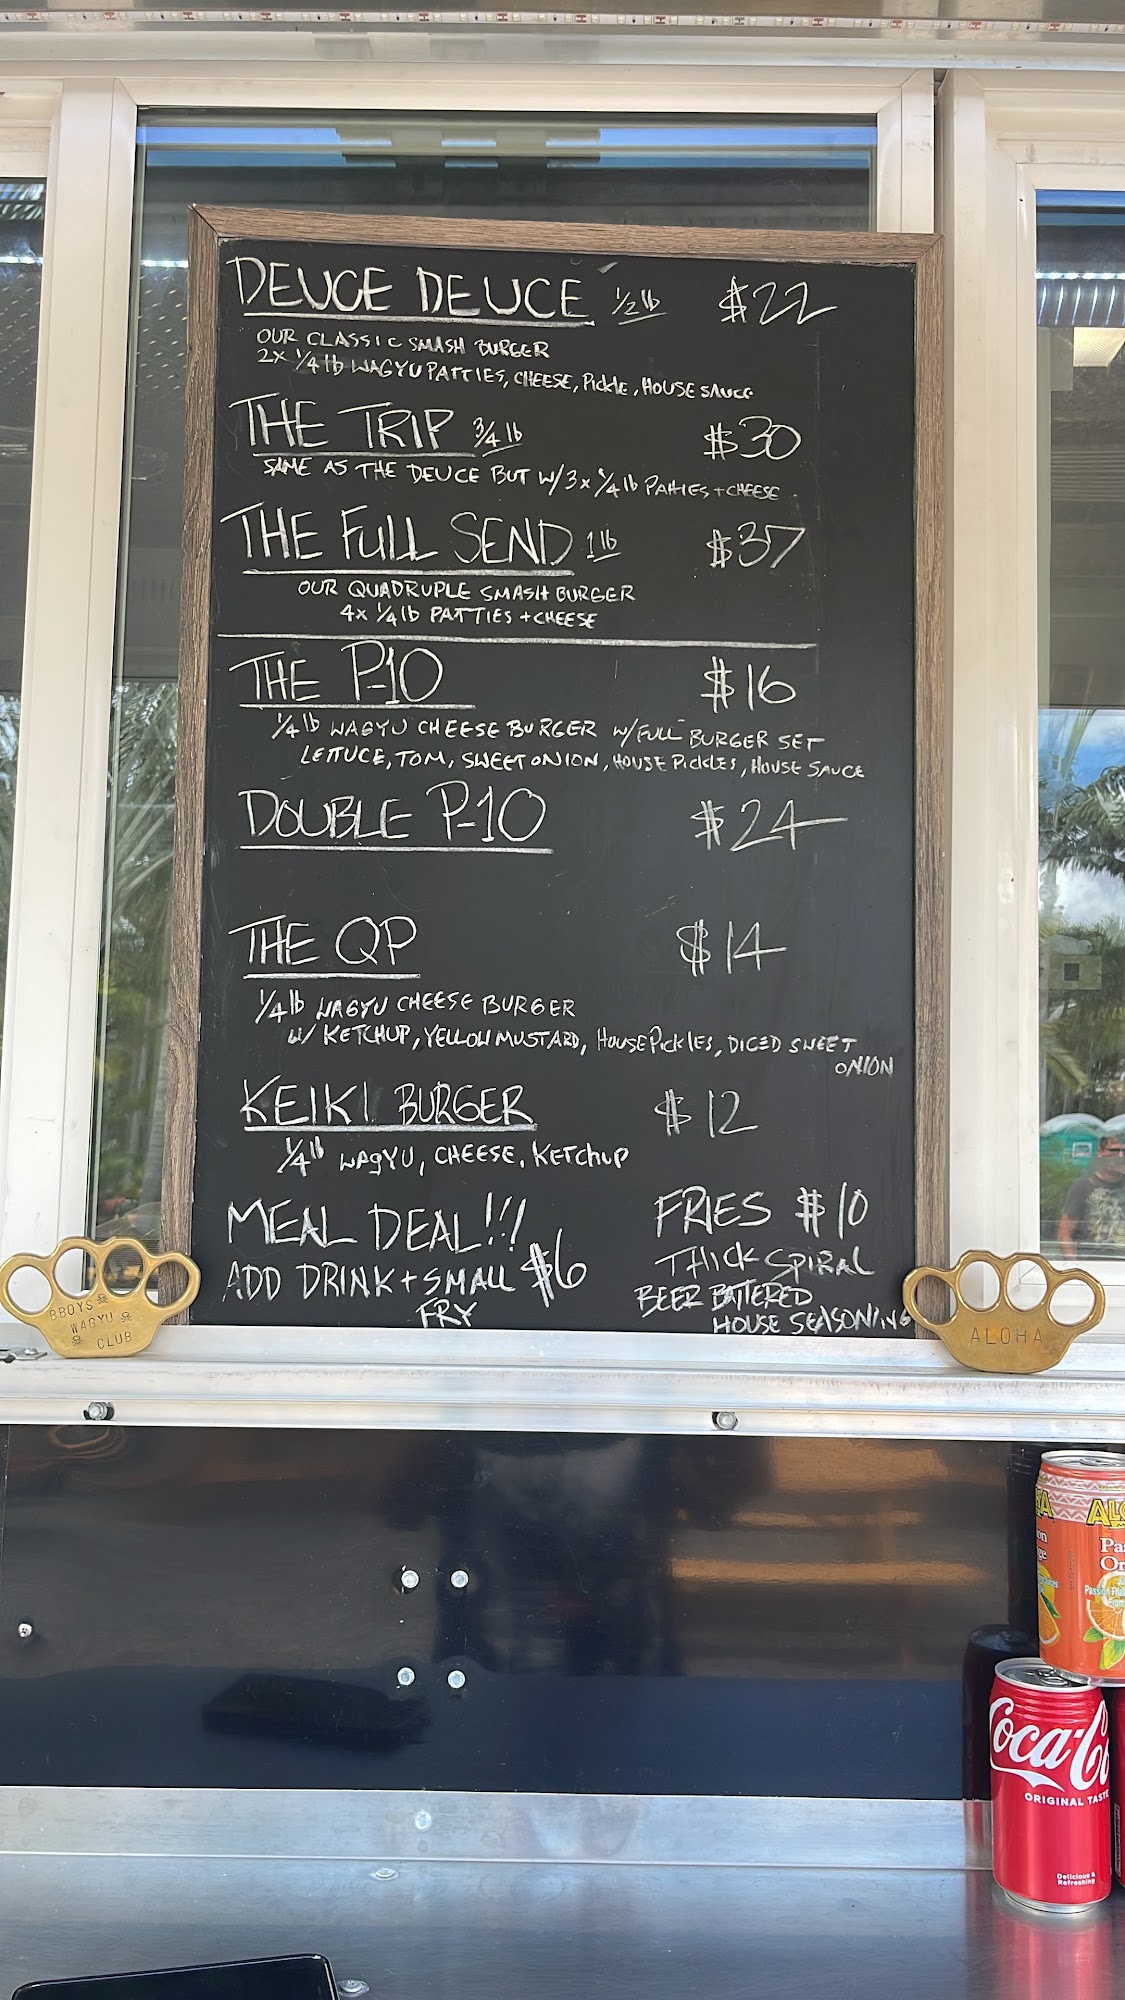 DEUCE DEUCE 1/2 lb $22
OUR CLASSIC SMASH BURGER
2x 1/4 lb WAGYU PATTIES, CHEESE, Pickle, HOUSE SAUCE
THE TRIP 3/4 lb $30
SAME AS THE DEUCE BUT W/ 3x 1/4 lb PATTIES + CHEESE
THE FULL SEND 1 lb $37
OUR QUADRUPLE SMASH BURGER
4x 1/4 lb PATTIES + CHEESE
THE P-10 $16
1/4 lb WAGYU CHEESE BURGER W/ FULL BURGER SET
LETTUCE, TOM, SWEET ONION, HOUSE PICKLES, HOUSE SAUCE
DOUBLE P-10 $24
THE QP $14
1/4 lb WAGYU CHEESE BURGER
W/ KETCHUP, YELLOW MUSTARD, HOUSE PICKLES, DICED SWEET
ONION
KEIKI BURGER $12
1/4 lb WAGYU, CHEESE, KETCHUP
MEAL DEAL!!!
ADD DRINK + SMALL $6
FRY
FRIES $10
THICK SPIRAL
BEER BATTERED
HOUSE SEASONING
BBOYS
WAGYU
CLUB
ALOHA
Coca-Co
ORIGINAL TASTE
Delicious &
Refreshing